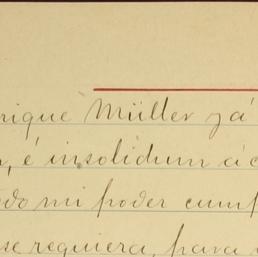 rique Müller já
, é insolidum á c
do mi poder cump
se requiera, para